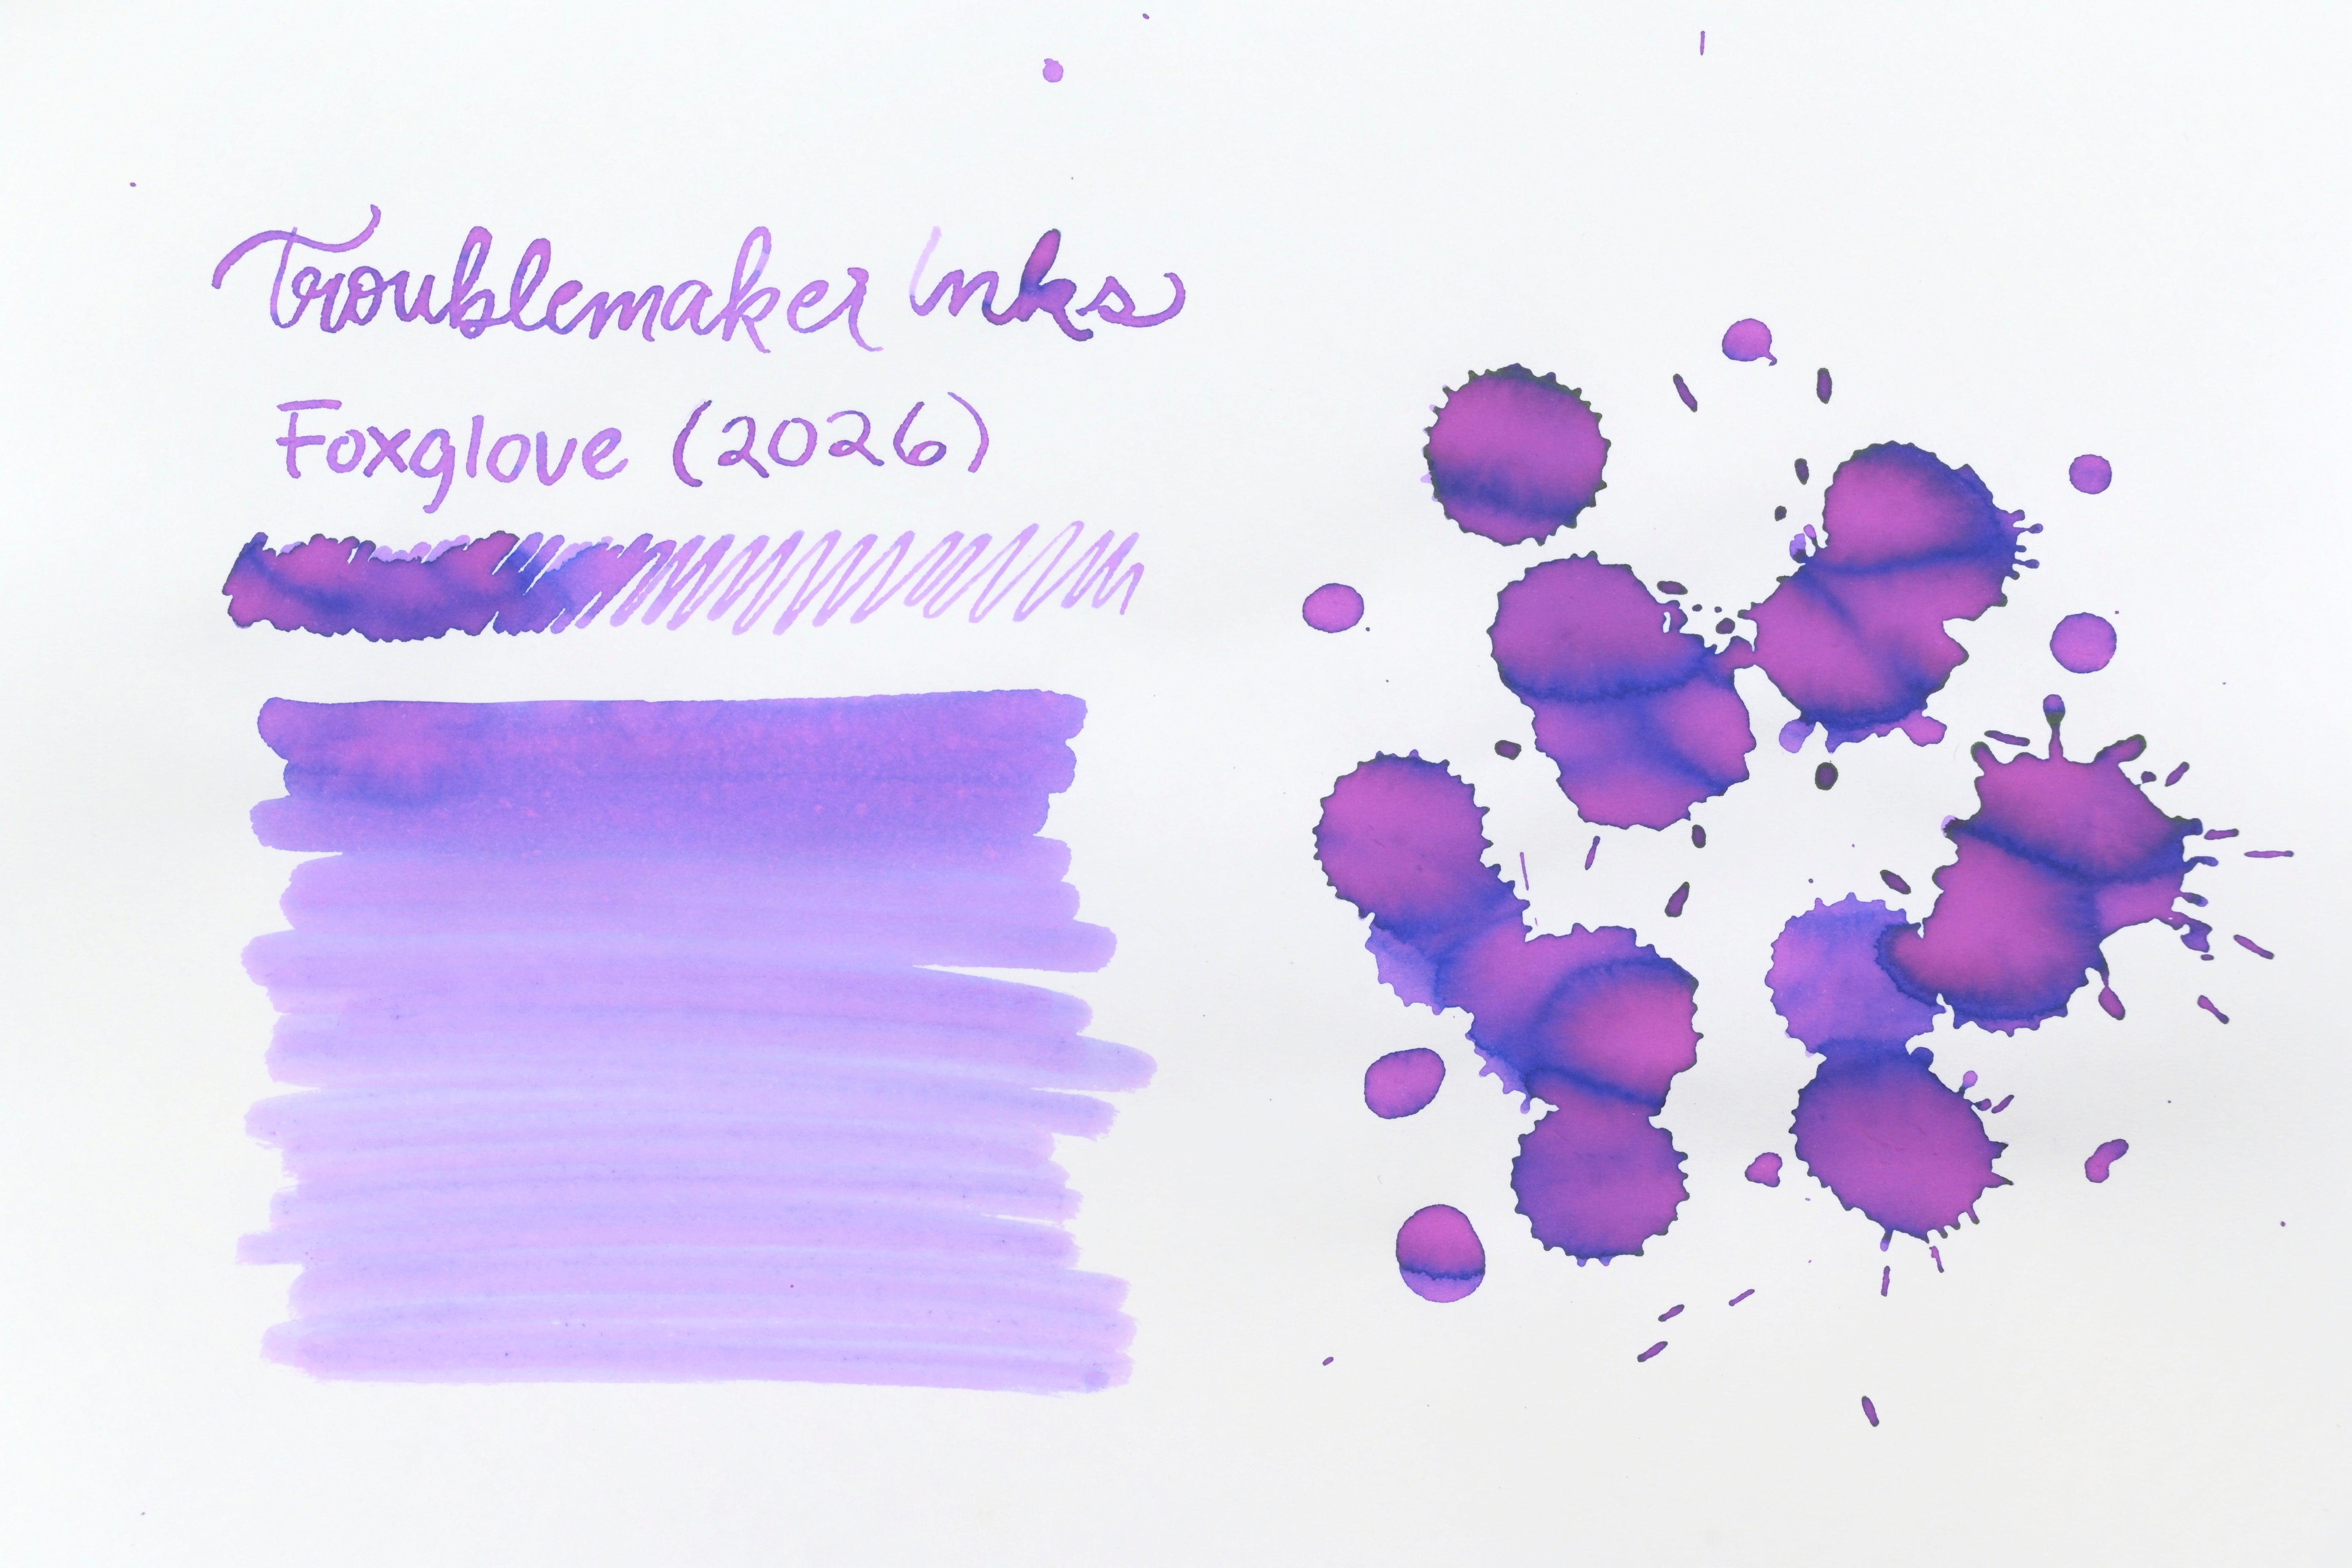 Troublemaker Inks
Foxglove (2026)